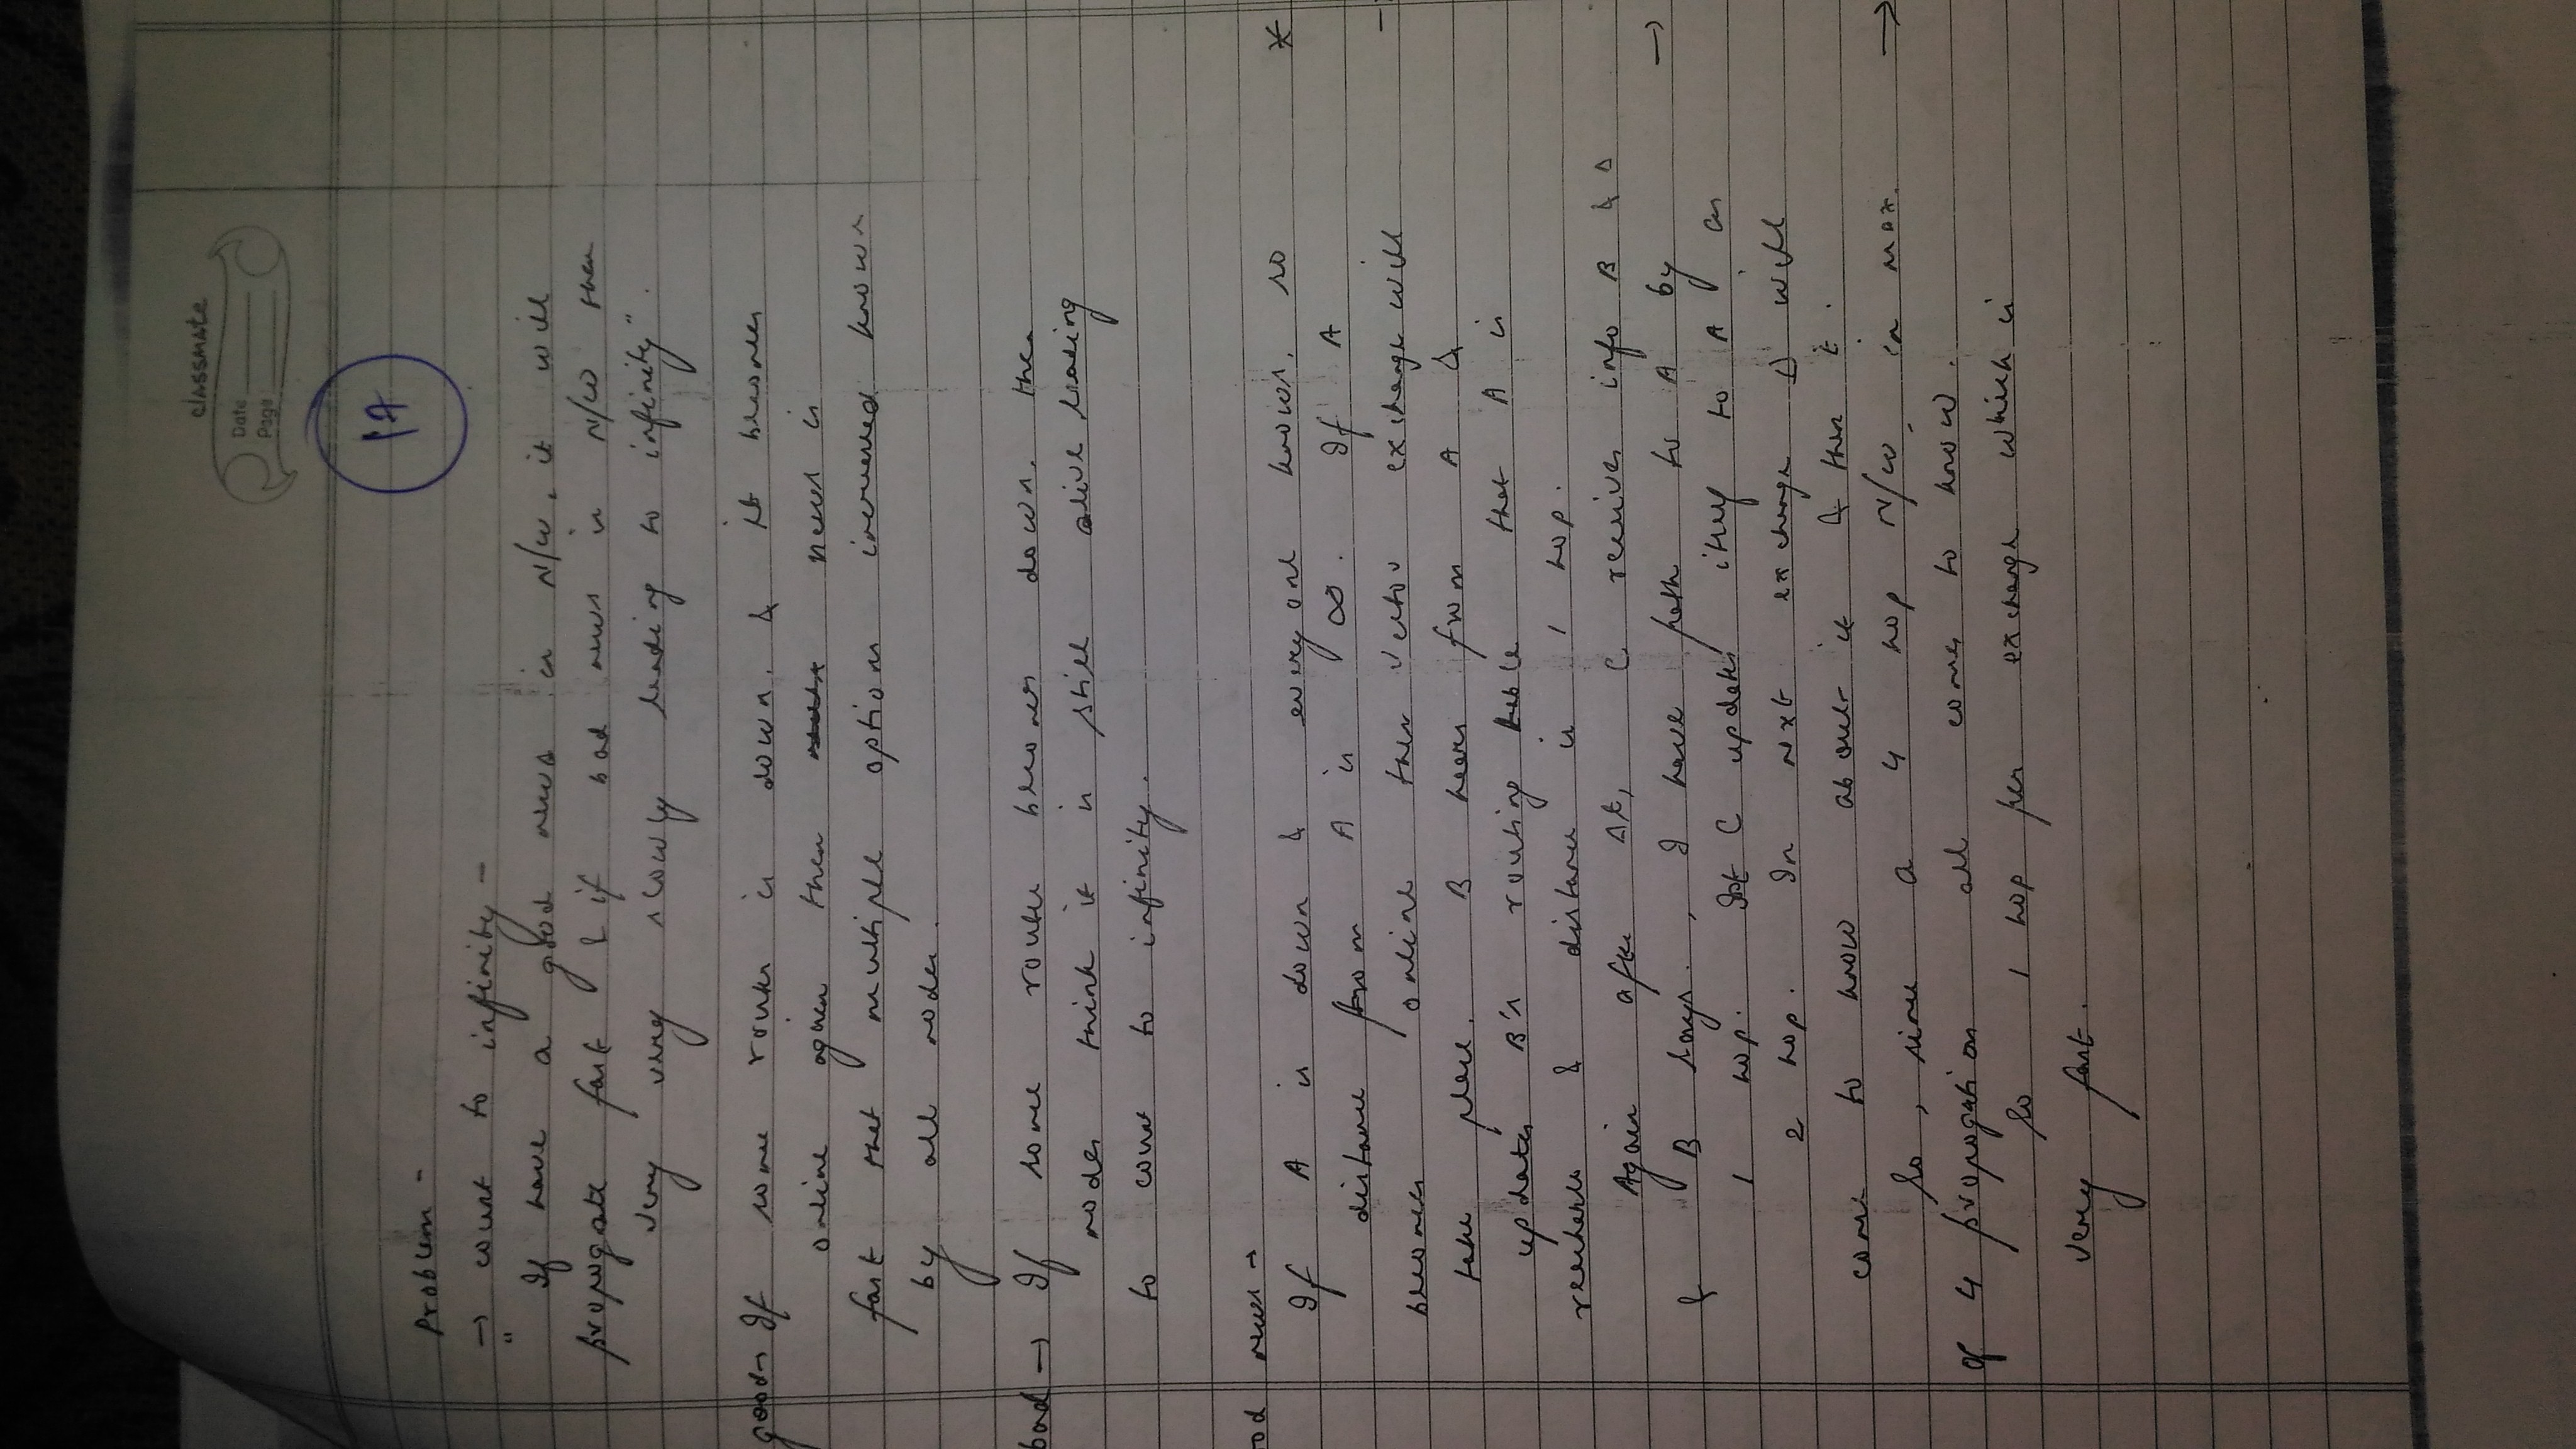 classmate
Date
Page
17
Problem -
→ count to infinity -
" If have a good news in N/w, it will
propogate fast & if bad news in N/w then
very very slowly leading to infinity".
good → If some router is down, & it becomes
online again then news is
fast that multiple options increased known
by all nodes.
bad → If some router becomes down then
nodes think it is still alive leading
to count to infinity.
news →
If A is down & everyone knows, so
distance from A is ∞. If A
becomes online then vector exchange will
take place. B hears from A &
updates B's routing table that A is
reachable & distance is 1 hop.
Again after Δt, C receives info B &
& B says, I have path to A by
1 hop. C updates itself to A as
2 hop. In nxt exchange D will
come to know about it & then E.
So, since a 4 hop N/w, in max.
of 4 propogation all comes to know.
So 1 hop per exchange which is
very fast.